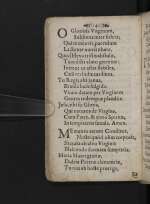 O Gloriosa Virginum,
Sublimis inter sidera,
Qui te creavit, parvulum
Lactente nutris ubere.
Quod Heva tristis abstulit,
Tu reddis almo germine:
Intrent ut astra flebiles,
Cœli recludis cardines.
Tu Regis alti janua,
Et aula lucis fulgida:
Vitam datam per Virginem
Gentes redemptæ plaudite.
Jesu, tibi sit gloria,
Qui natus es de Virgine,
Cum Patre, & almo Spiritu,
In sempiterna sæcula. Amen.
Memento rerum Conditor,
Nostri quod olim corporis,
Sacrata ab alvo Virginis
Nascendo formam sumpseris.
Maria Mater gratiæ,
Dulcis Parens clementiæ,
Tu nos ab hoste protege,